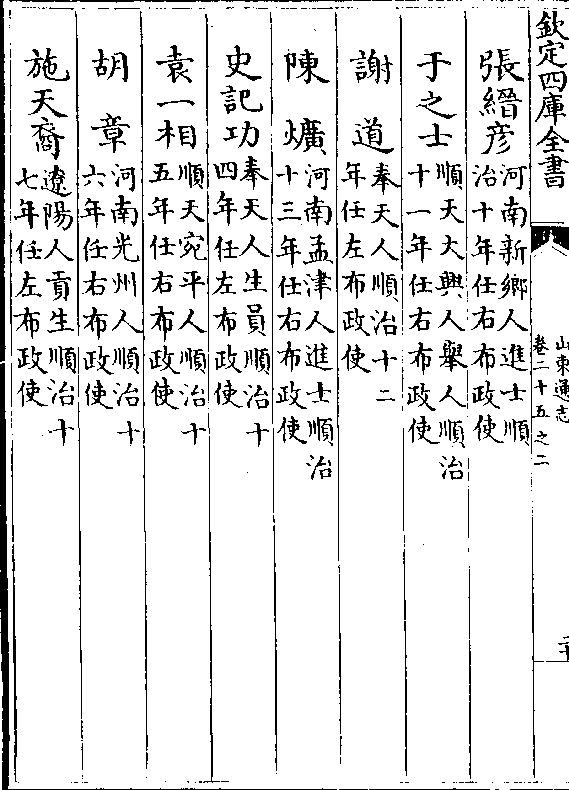 欽定四庫全書
山東通志
卷二十五之二
張縉彦河南新鄉人進士順治十年任右布政使
于之士順天大興人舉人順治十一年任右布政使
謝道奉天人順治十二年任左布政使
陳爌河南孟津人進士順治十三年任右布政使
史記功奉天人生員順治十四年任左布政使
袁一相順天宛平人順治十五年任右布政使
胡章河南光州人順治十六年任右布政使
施天裔遼陽人貢生順治十七年任左布政使